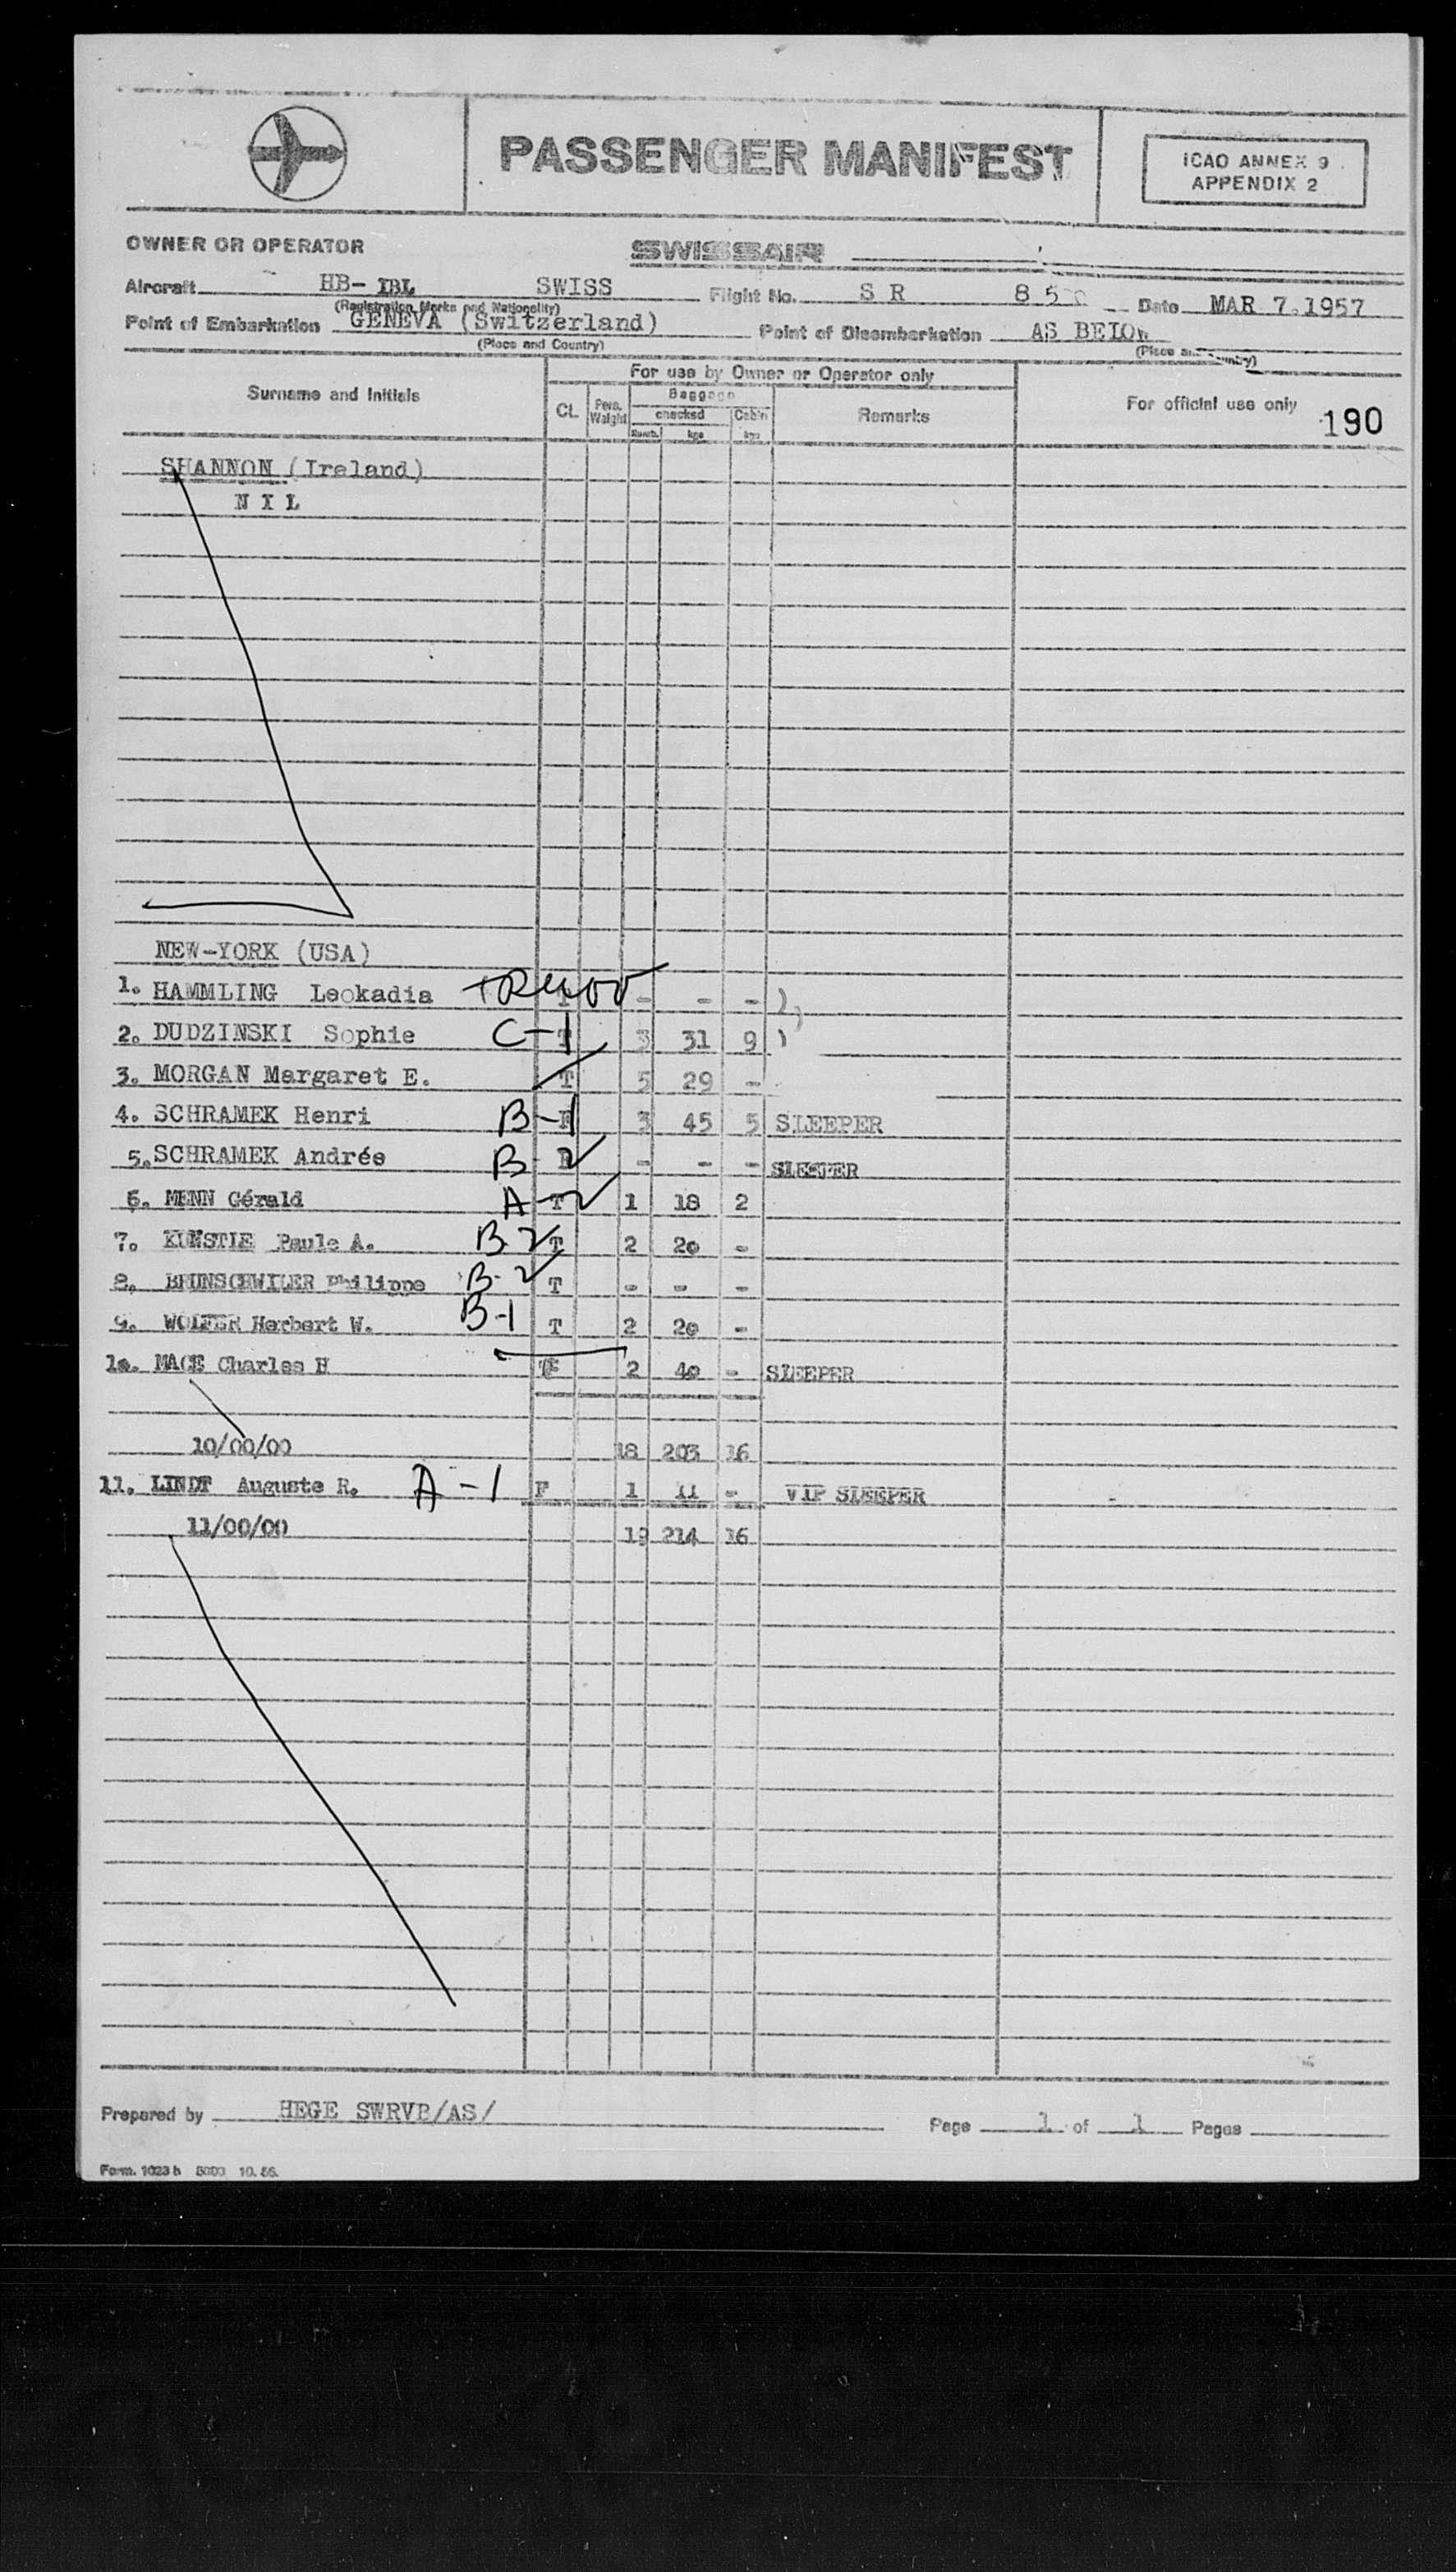 PASSENGER MANIFEST
ICAO ANNEX 9
APPENDIX 2
OWNER OR OPERATOR SWISSAIR
Aircraft HB- IBL SWISS Flight No. S R Date MAR 7.1957
(Registration Marks and Nationality)
Point of Embarkation GENEVA (Switzerland) Point of Disembarkation AS BELOW
(Place and Country) (Place and Country)
For use by Owner or Operator only
Surname and Initials CL Pers. Weight Baggage checked Cabin Numb. kgs kgs Remarks For official use only 190
SHANNON (Ireland)
N I L
NEW-YORK (USA)
1. HAMMLING Leokadia T - - - )
2. DUDZINSKI Sophie C-1 T 3 31 9 )
3. MORGAN Margaret E. T 5 29 -
4. SCHRAMEK Henri B-1 F 3 45 5 SLEEPER
5. SCHRAMEK Andrée B-2 - - - SLEEPER
6. MENN Gérald A-2 T 1 18 2
7. KUNSTIE Paule A. B-2 T 2 20 -
8. BRUNSCHWILER Philippe B-2 T - - -
9. WOLFER Herbert W. B-1 T 2 20 -
10. MACE Charles H F 2 40 - SLEEPER
10/00/00 18 203 16
11. LINDT Auguste R. A-1 F 1 11 - VIP SLEEPER
11/00/00 19 214 16
Prepared by HEGE SWRVB/AS/ Page 1 of 1 Pages
Form. 1023 h 10.56.